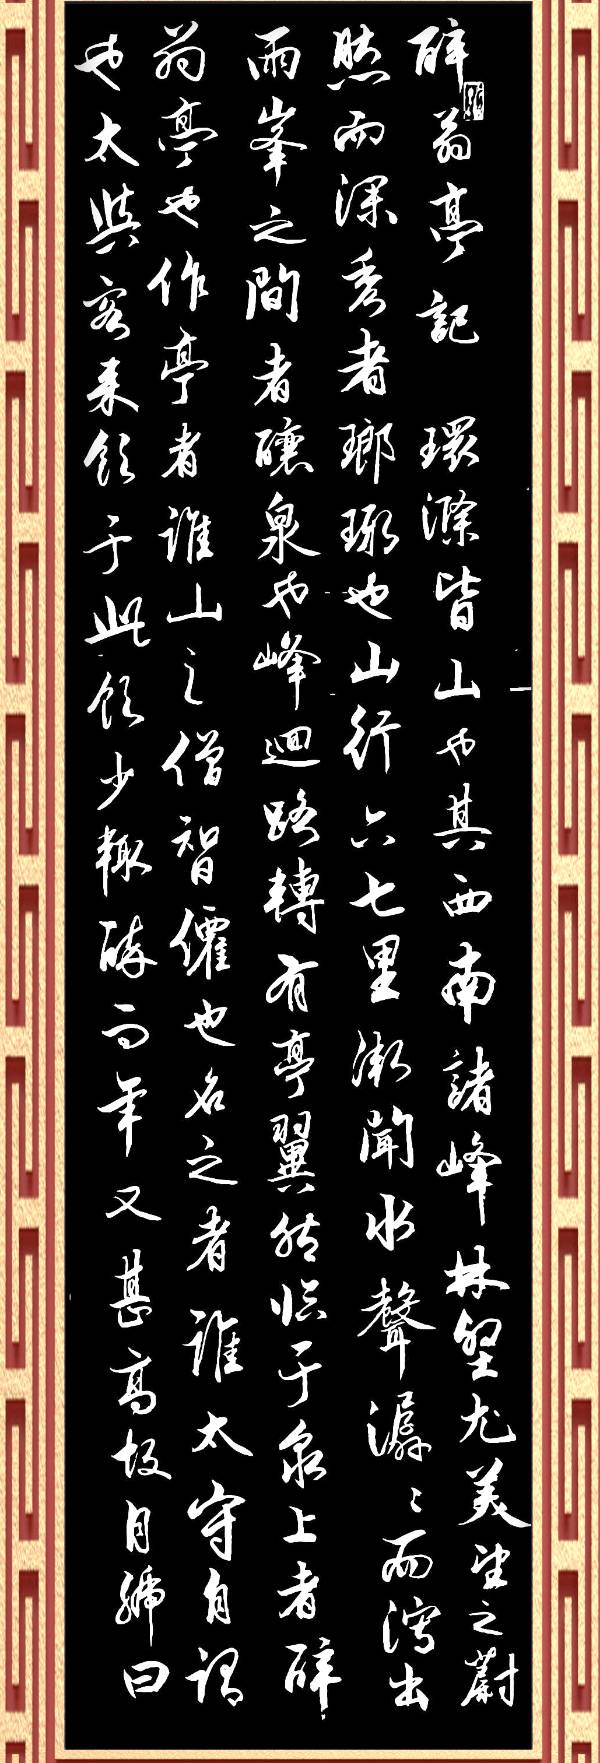 醉翁亭記 環滁皆山也其西南諸峰林壑尤美望之蔚
然而深秀者瑯琊也山行六七里漸聞水聲潺〻而瀉出
兩峯之間者釀泉也峰迴路轉有亭翼然临于泉上者醉
翁亭也作亭者誰山之僧智僊也名之者誰太守自謂
也太與客来飲于此飲少輒醉而年又甚高故自號曰